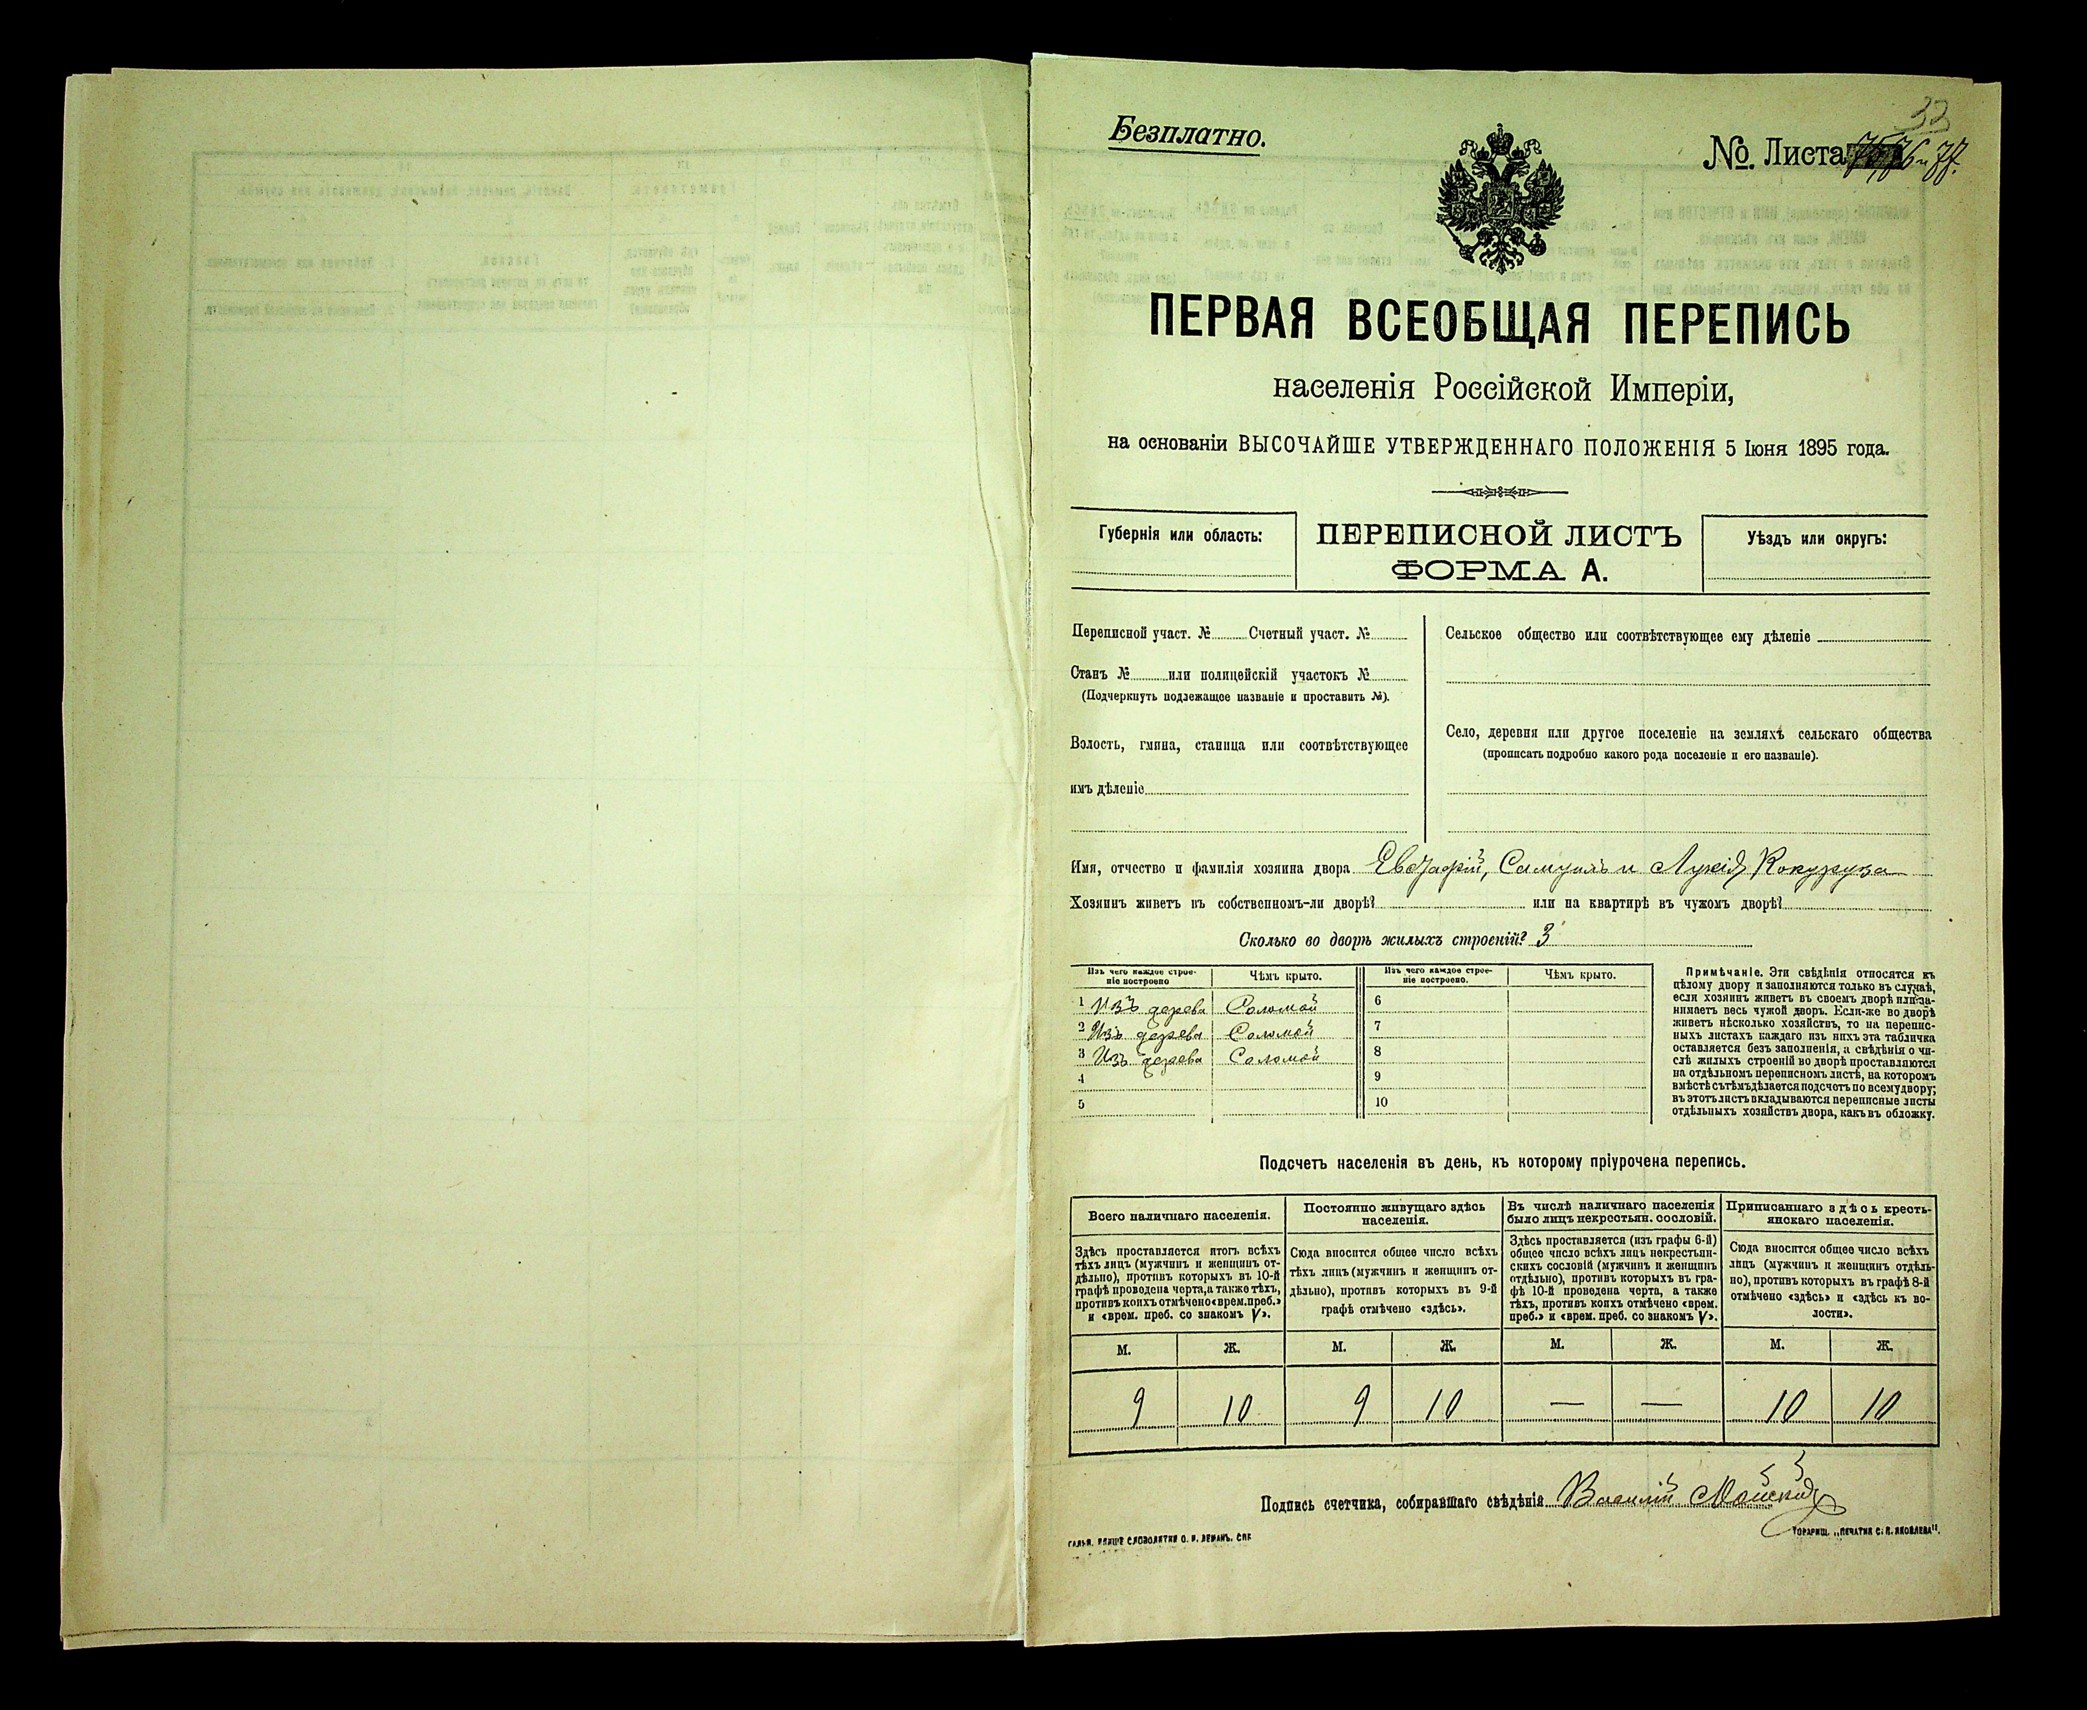 33
Безплатно.
№. Листа 75, 76 и 77.
ПЕРВАЯ ВСЕОБЩАЯ ПЕРЕПИСЬ
населенія Россійской Имперіи,
на основаніи ВЫСОЧАЙШЕ УТВЕРЖДЕННАГО ПОЛОЖЕНІЯ 5 Іюня 1895 года.
Губернія или область:
ПЕРЕПИСНОЙ ЛИСТЪ
ФОРМА А.
Уѣздъ или округъ:
Переписной участ. № Счетный участ. №
Станъ № или полицейскій участокъ №
(Подчеркнуть подлежащее названіе и проставить №).
Волость, гмина, станица или соотвѣтствующее
имъ дѣленіе
Сельское общество или соотвѣтствующее ему дѣленіе
Село, деревня или другое поселеніе на земляхъ сельскаго общества
(прописать подробно какого рода поселеніе и его названіе).
Имя, отчество и фамилія хозяина двора Евстафій, Самуилъ и Лукія Кокуруза
Хозяинъ живетъ въ собственномъ-ли дворѣ? или на квартирѣ въ чужомъ дворѣ?
Сколько во дворѣ жилыхъ строеній? 3
Изъ чего каждое строе-
ніе построено
Чѣмъ крыто.
Изъ чего каждое строе-
ніе построено.
Чѣмъ крыто.
1 Изъ дерева Соломой 6
2 Изъ дерева Соломой 7
3 Изъ дерева Соломой 8
4 9
5 10
Примѣчаніе. Эти свѣдѣнія относятся къ
цѣлому двору и заполняются только въ случаѣ,
если хозяинъ живетъ въ своемъ дворѣ или за-
нимаетъ весь чужой дворъ. Если-же во дворѣ
живетъ нѣсколько хозяйствъ, то на перепис-
ныхъ листахъ каждаго изъ нихъ эта табличка
оставляется безъ заполненія, а свѣдѣнія о чи-
слѣ жилыхъ строеній во дворѣ проставляются
на отдѣльномъ переписномъ листѣ, на которомъ
вмѣстѣ съ тѣмъ дѣлается подсчетъ по всему двору;
въ этотъ листъ вкладываются переписные листы
отдѣльныхъ хозяйствъ двора, какъ въ обложку.
Подсчетъ населенія въ день, къ которому пріурочена перепись.
Всего наличнаго населенія.
Постоянно живущаго здѣсь
населенія.
Въ числѣ наличнаго населенія
было лицъ некрестьян. сословій.
Приписаннаго здѣсь кресть-
янскаго населенія.
Здѣсь проставляется итогъ всѣхъ
тѣхъ лицъ (мужчинъ и женщинъ от-
дѣльно), противъ которыхъ въ 10-й
графѣ проведена черта, а также тѣхъ,
противъ коихъ отмѣчено «врем. преб.»
и «врем. преб. со знакомъ V».
Сюда вносится общее число всѣхъ
тѣхъ лицъ (мужчинъ и женщинъ от-
дѣльно), противъ которыхъ въ 9-й
графѣ отмѣчено «здѣсь».
Здѣсь проставляется (изъ графы 6-й)
общее число всѣхъ лицъ некрестьян-
скихъ сословій (мужчинъ и женщинъ
отдѣльно), противъ которыхъ въ гра-
фѣ 10-й проведена черта, а также
тѣхъ, противъ коихъ отмѣчено «врем.
преб.» и «врем. преб. со знакомъ V».
Сюда вносится общее число всѣхъ
лицъ (мужчинъ и женщинъ отдѣль-
но), противъ которыхъ въ графѣ 8-й
отмѣчено «здѣсь» и «здѣсь къ во-
лости».
М. Ж. М. Ж. М. Ж. М. Ж.
9 10 9 10 — — 10 10
Подпись счетчика, собиравшаго свѣдѣнія Василій
СЛОВОЛИТНИ О. И. ЛЕМАНЪ. СПБ
ТОВАРИЩ. „ПЕЧАТНЯ С. П. ЯКОВЛЕВА".